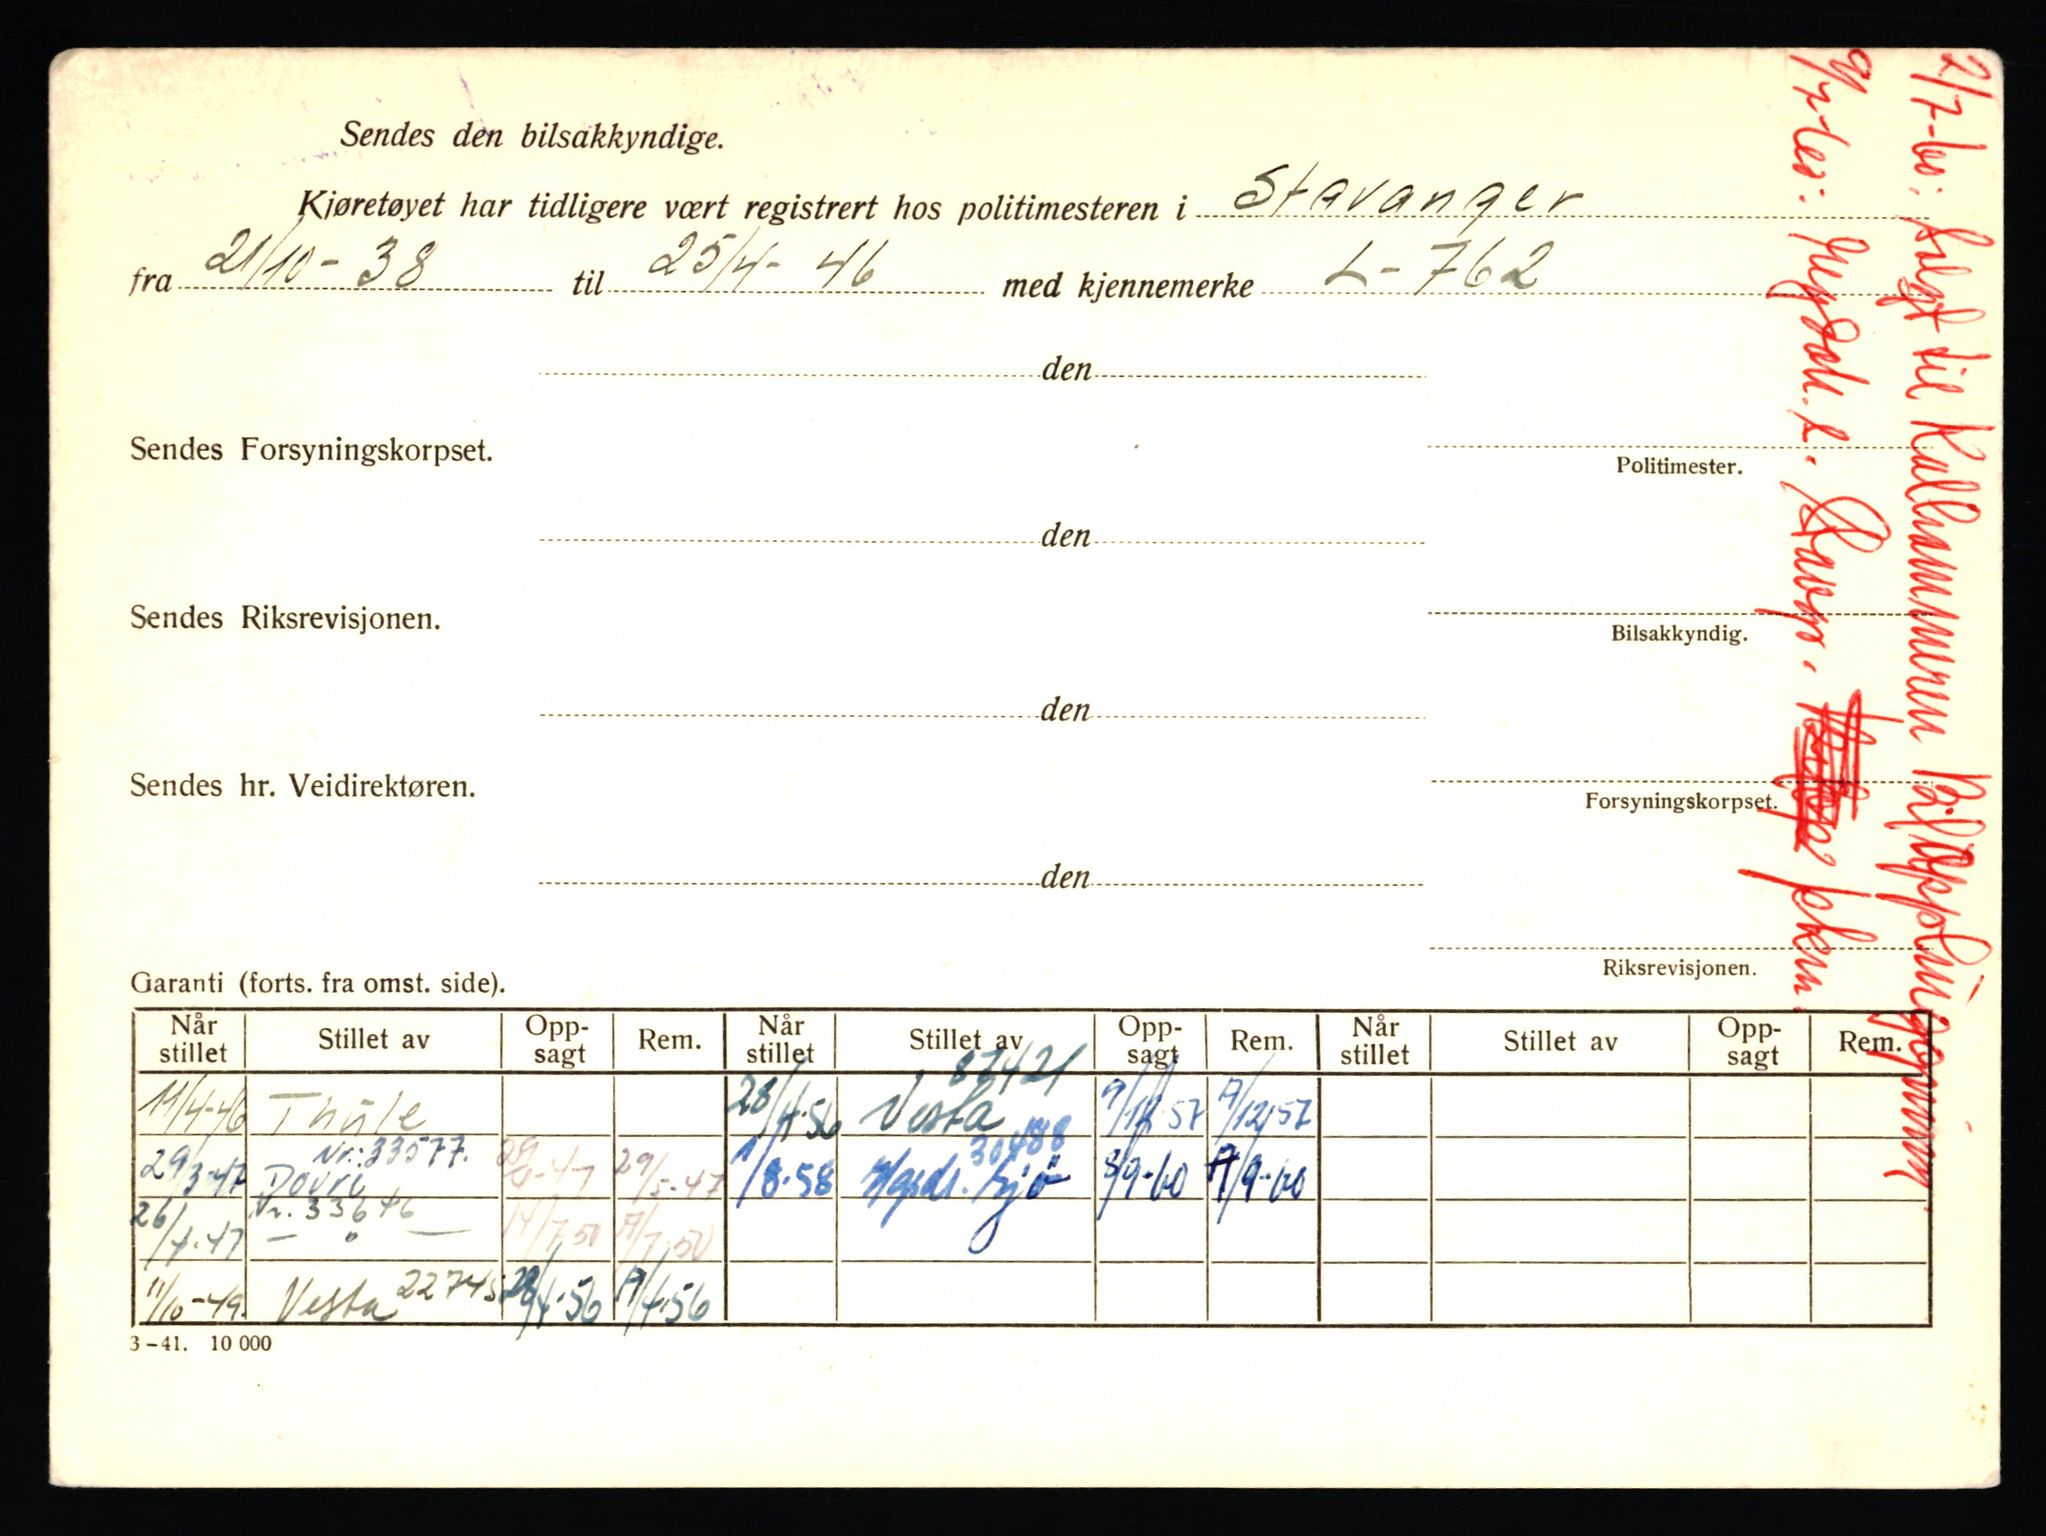 Sendes den bilsakkyndige.
Kjøretøyet har tidligere vært registrert hos politimesteren i Stavanger
fra 21/10-38 til 25/4-46 med kjennemerke L-762
den
Sendes Forsyningskorpset.
Politimester.
den
Sendes Riksrevisjonen.
Bilsakkyndig.
den
Sendes hr. Veidirektøren.
Forsyningskorpset.
den
Riksrevisjonen.
Garanti (forts. fra omst. side).
Når stillet Stillet av Opp-sagt Rem. Når stillet Stillet av Opp-sagt Rem. Når stillet Stillet av Opp-sagt Rem.
11/4-46 Thule 28/4-56 Vesta 87421 /12-57 /12-57
29/3-47 Dovre Nr.: 33577. 29/5-47 1/8-58 30488 /9-60 /9-60
26/4-47 — " — Nr. 33646 14/7-50 /7-50
11/10-49. Vesta 22745 28/4-56 /4-56
3-41. 10 000
2/7-60: Solgt til Kallhammeren Bilopphuggeri